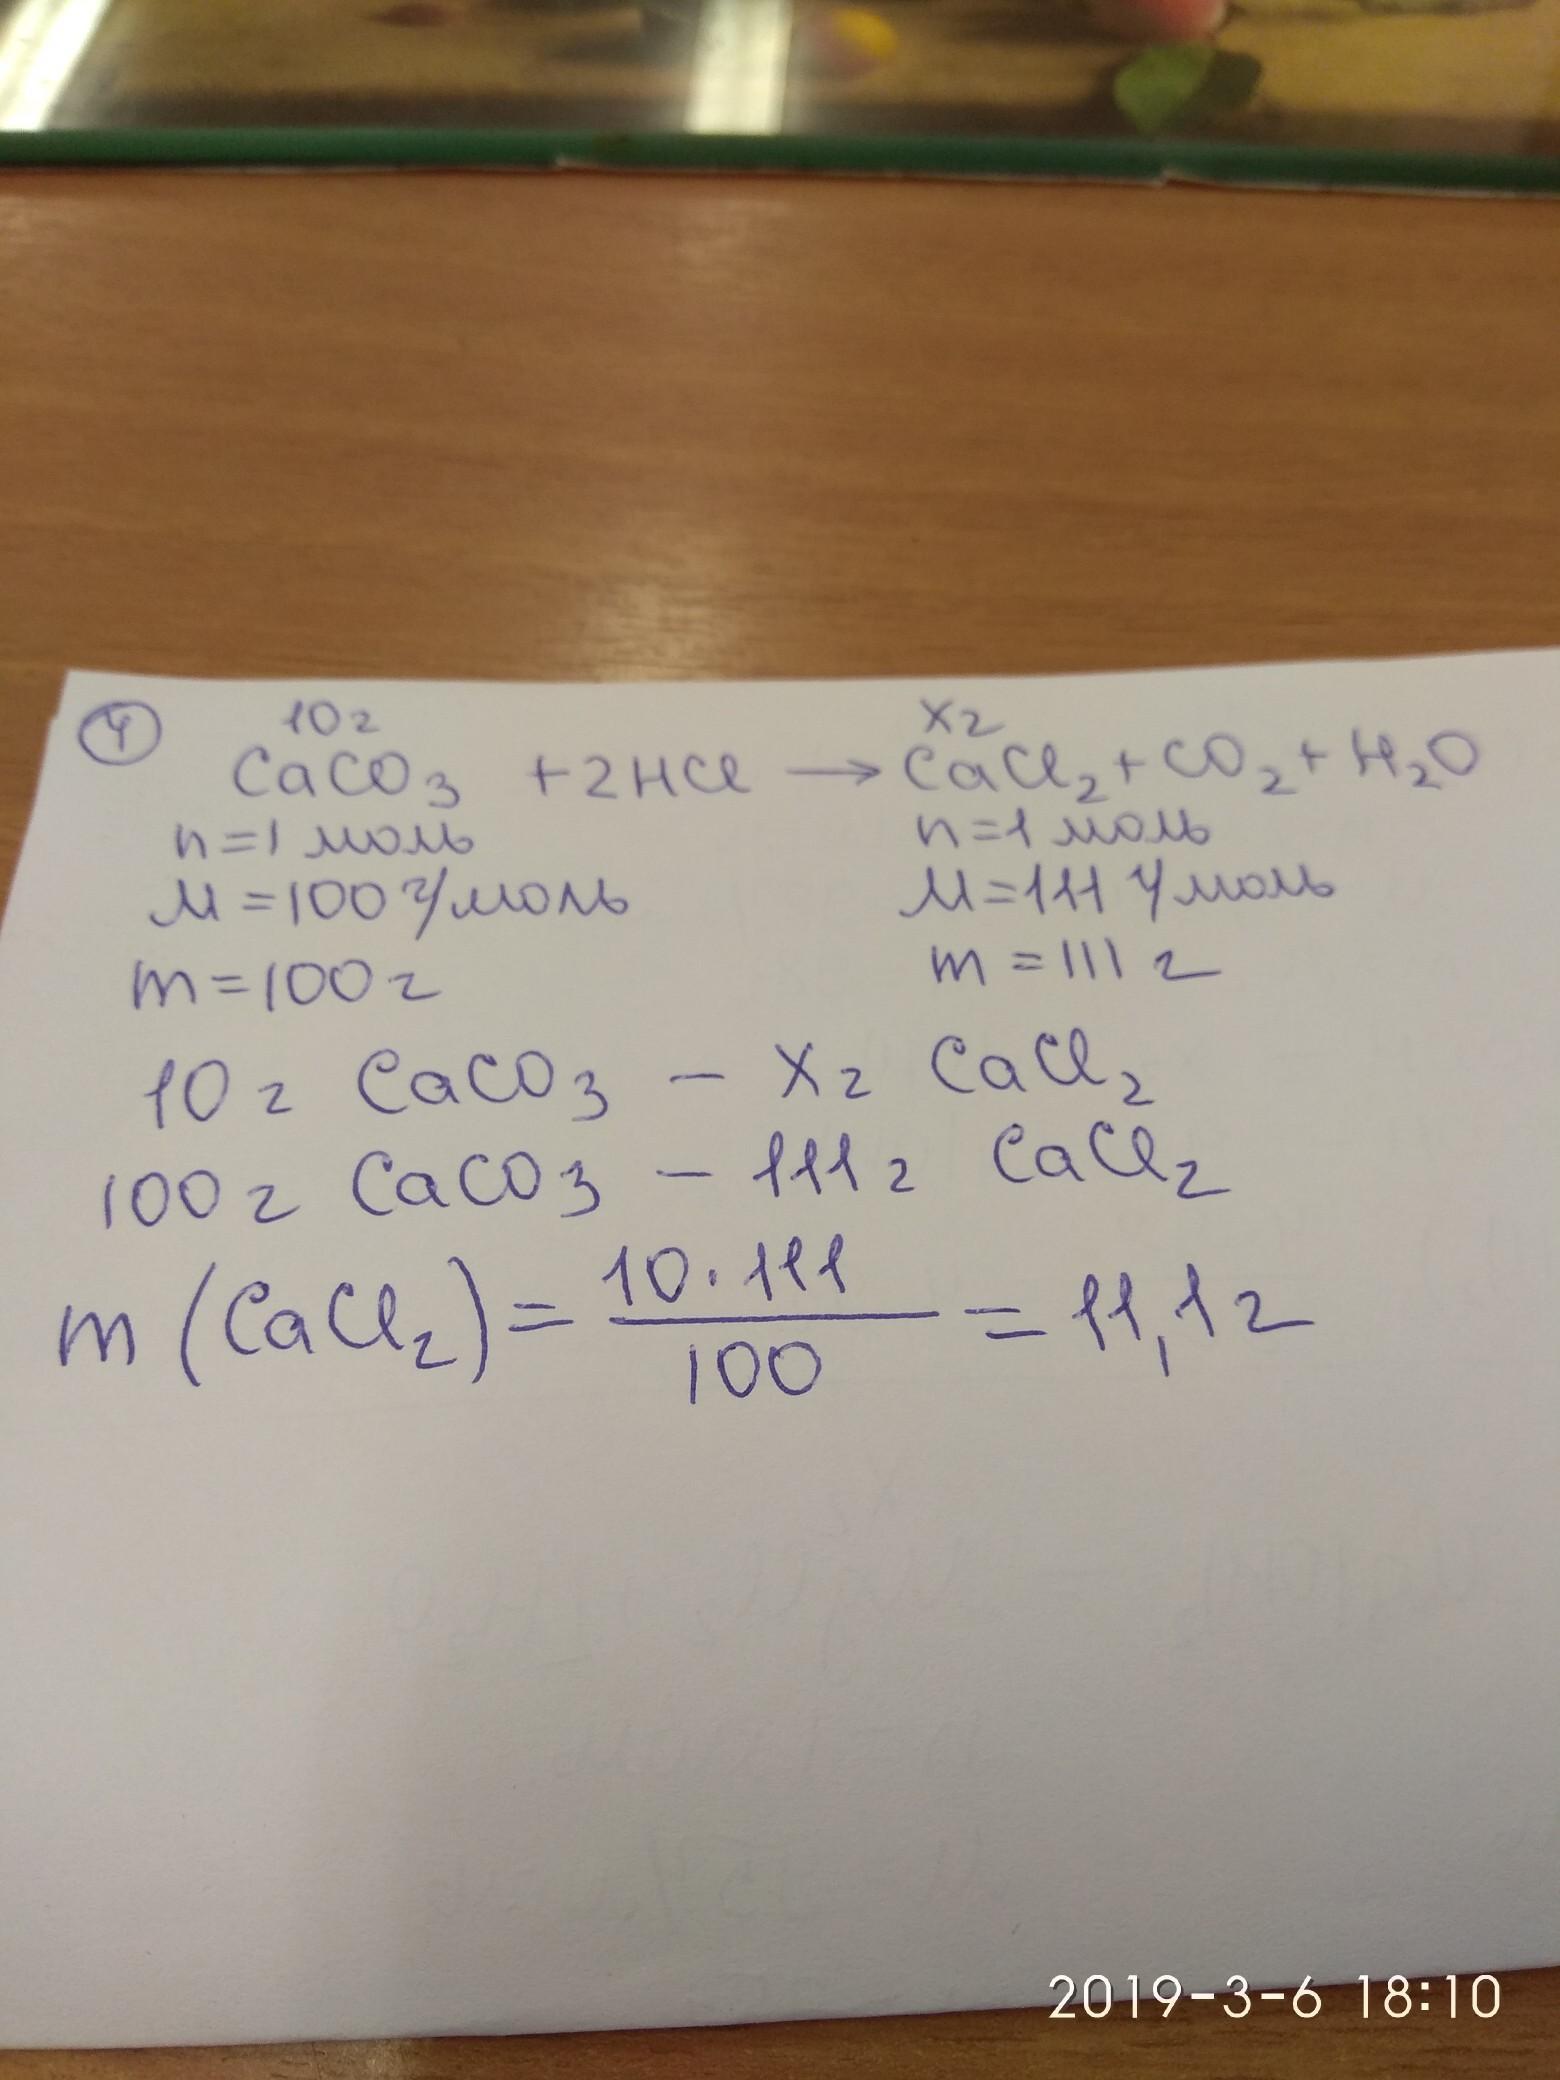 ④ 10г xг
CaCO₃ + 2HCl → CaCl₂ + CO₂ + H₂O
n = 1 моль n = 1 моль
M = 100 г/моль M = 111 г/моль
m = 100 г m = 111 г
10 г CaCO₃ – xг CaCl₂
100 г CaCO₃ – 111 г CaCl₂
m (CaCl₂) = 10 · 111 / 100 = 11,1 г
2019-3-6 18:10